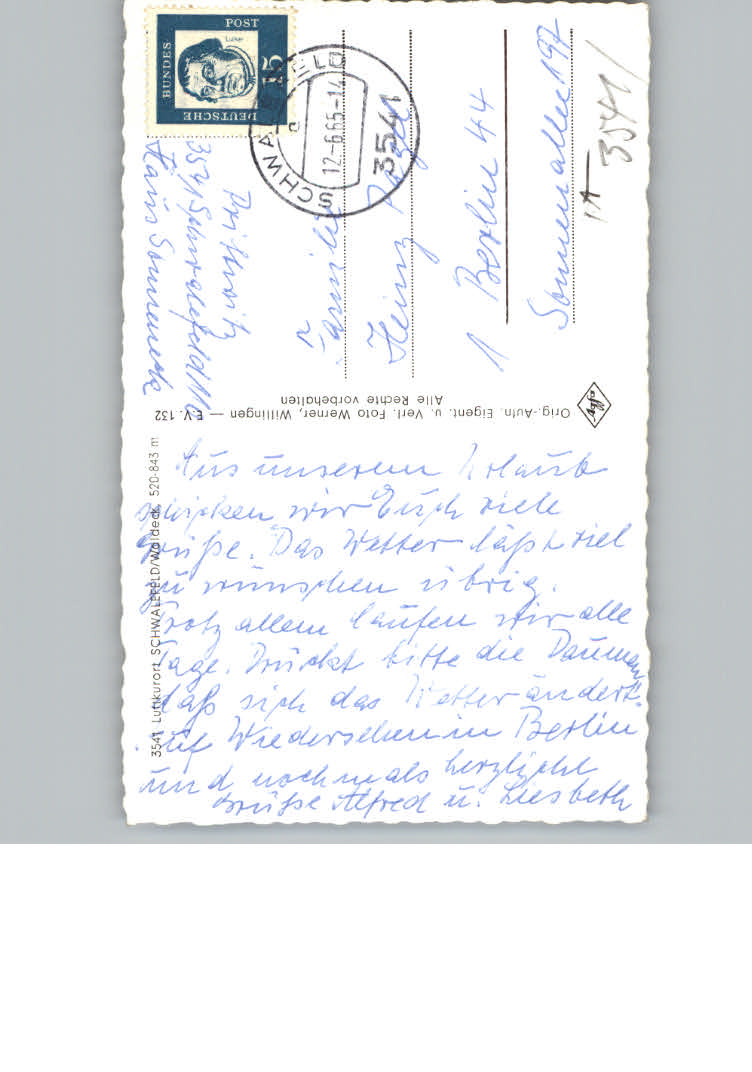 Aus unserem Urlaub
schicken wir Euch viele
Grüße. Das Wetter läßt viel
zu wünschen übrig.
Trotz allem laufen wir alle
Tage. Drückt bitte die Daumen,
daß sich das Wetter ändert.
Auf Wiedersehen in Berlin
und nochmals herzliche
Grüße Alfred u. Liesbeth
3541 Luftkurort SCHWALEFELD/Waldeck, 520-843 m
Orig.-Aufn. Eigent. u. Verl. Foto Werner, Willingen — E.V. 132
Alle Rechte vorbehalten
Agfa
DEUTSCHE
BUNDES
POST
Luther
15
SCHWALEFELD
a
12.-6.65-14
3541
3541 Schwalefeld
Haus Sonneneck
Familie
Heinz
1 Berlin 44
Sonnenallee 197
1A
3541/